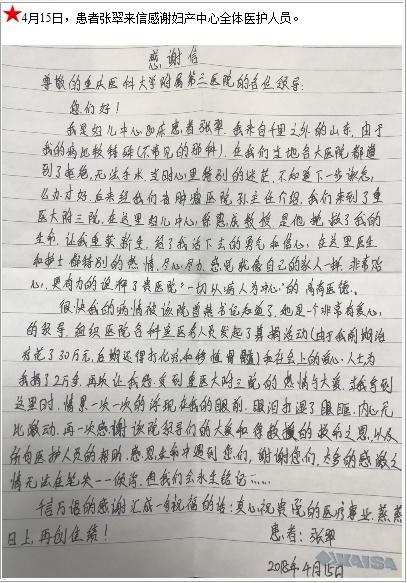 ★4月15日，患者张翠来信感谢妇产中心全体医护人员。
感谢信
尊敬的重庆医科大学附属第三医院的各位领导：
您们好！
我是妇儿中心 床患者张翠，我来自千里之外的山东，由于
我的病比较特殊（不常见的那种），在我们当地各大医院都遭
到了拒绝，无法手术，当时心里特别的迷茫，不知道下一步该怎
么办才好，后来经我们省肿瘤医院孙主任介绍，我们来到了重
医大附三院，在这里妇儿中心，徐惠庆教授，是他挽救了我的
生命，让我重获新生，给了我活下去的勇气和信心，在这里医生
和护士都特别的热情，尽心尽力，感觉就像自己的家人一样，非常贴
心，更有力的诠释了贵医院“一切以病人为中心”的高尚医德。
很快我的病情被该院曾 书记知道了，她是一个非常有爱心
的领导，组织医院各科室医务人员发起了募捐活动（由于我前期治
疗花了30万元，后期还得打化疗和移植骨髓）和社会上的爱心人士为
我捐了2万多，再次让我感受到重医大附三院的热情与大爱，
这里时，情景一次一次的浮现在我的眼前，眼泪打湿了眼眶，内心无
比激动，再一次感谢该院领导们的大爱和徐教授的救命之恩，以及
所有医护人员的帮助，感恩生命中遇到您们，谢谢您们，太多的感激之
情无法在笔尖一一倾泻，但我们会永生铭记……
千言万语的感谢汇成一句祝福的话：真心祝贵院的医疗事业，蒸蒸
日上，再创佳绩！
患者：张翠
2018年4月15日
KAISA